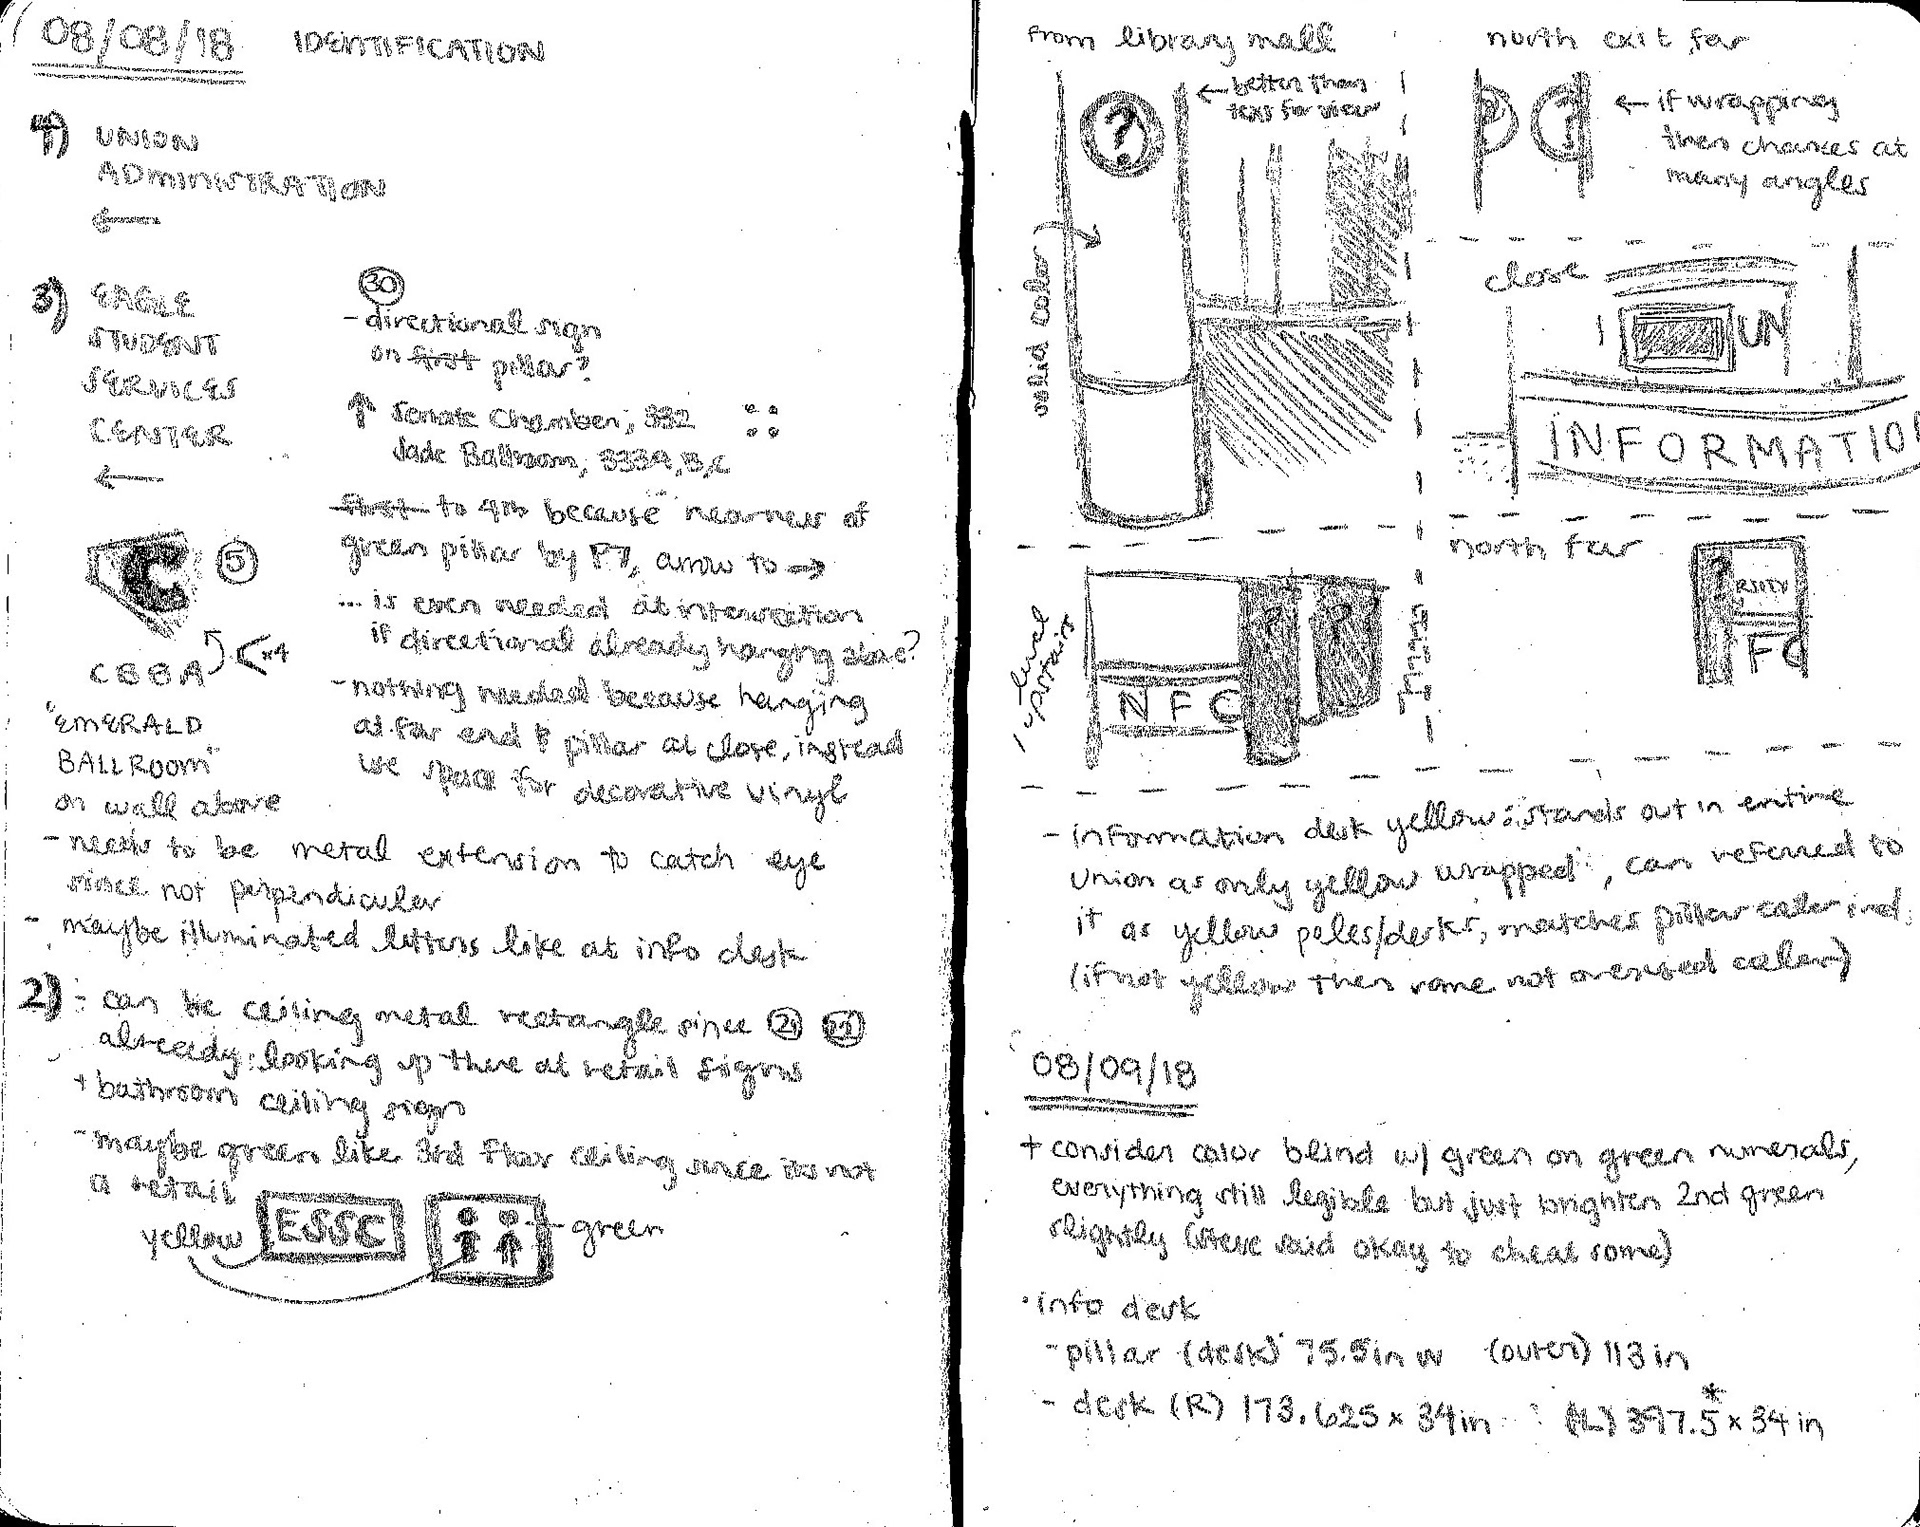 08/08/18 IDENTIFICATION
4) UNION
ADMINISTRATION
←
3) EAGLE
STUDENT
SERVICES
CENTER
←
C
5
CBBA
x4
"EMERALD
BALLROOM"
on wall above
- needs to be metal extension to catch eye
since not perpendicular
- maybe illuminated letters like at info desk
30
- directional sign
on first pillar?
↑ Senate Chamber, 332
Jade Ballroom, 333A,B,C
first to 4th because nearness of
green pillar by P7, arrow to →
... is even needed at intersection
if directional already hanging above?
- nothing needed because hanging
at far end & pillar at close, instead
use space for decorative vinyl
2) - can be ceiling metal rectangle since 21 22
already looking up there at retail signs
+ bathroom ceiling sign
- maybe green like 3rd floor ceiling since its not
a retail
yellow
ESSC
green
from library mall
?
← better than
text for view
solid color
north exit far
? ?
← if wrapping
then chances at
many angles
close
UN
INFORMATION
1 level
upstairs
NFO
? ?
north far
?
RSITY
FO
- information desk yellow: stands out in entire
Union as only yellow "wrapped", can referred to
it as yellow poles/desks, matches pillar color ind.
(if not yellow then some not overused color)
08/09/18
+ consider color blind w/ green on green numerals,
everything still legible but just brighten 2nd green
slightly (Steve said okay to cheat some)
• info desk
- pillar (desk) 75.5in w (outer) 113 in
- desk (R) 173.625 x 34in (L) 397.5* x 34 in